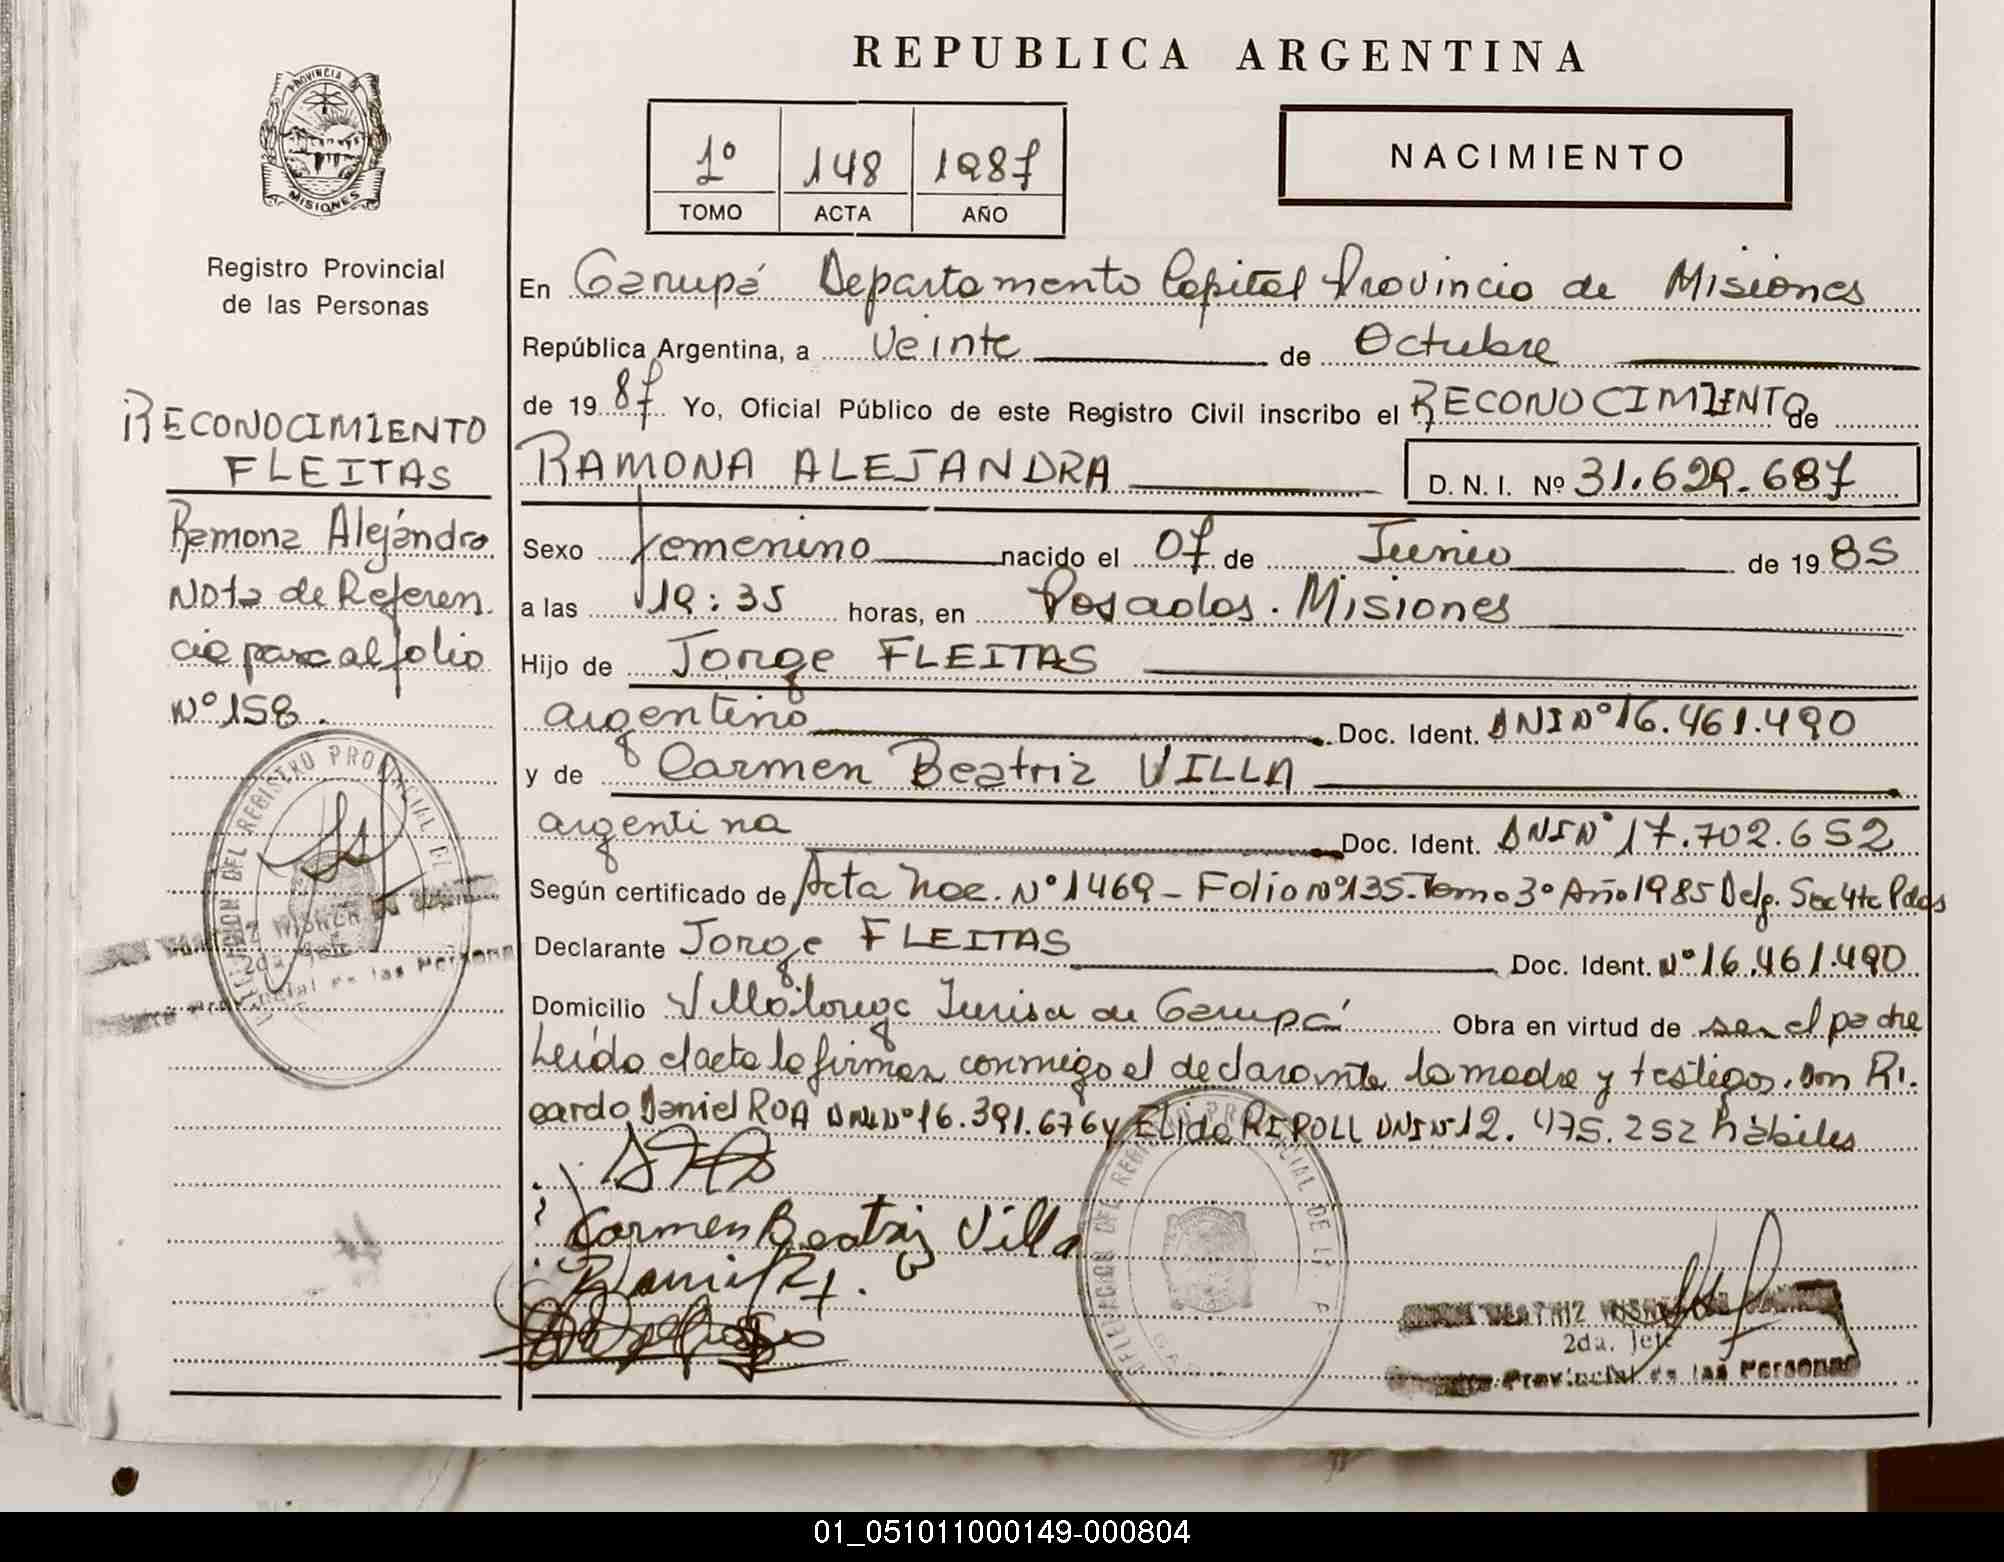 REPUBLICA ARGENTINA
PROVINCIA DE
MISIONES
Registro Provincial
de las Personas
1º 148 1987
TOMO ACTA AÑO
NACIMIENTO
En Garupá Departamento Capital Provincia de Misiones
República Argentina, a Veinte de Octubre
de 1987 Yo, Oficial Público de este Registro Civil inscribo el RECONOCIMIENTO de
RAMONA ALEJANDRA D. N. I. Nº 31.629.687
Sexo femenino nacido el 07 de Junio de 1985
a las 19:35 horas, en Posadas. Misiones
Hijo de Jorge FLEITAS
argentino Doc. Ident. DNI Nº 16.461.490
y de Carmen Beatriz VILLA
argentina Doc. Ident. DNI Nº 17.702.652
Según certificado de Acta Nac. Nº 1469 - Folio nº 135 - Tomo 3º Año 1985 Delg. Sec 4ta Pdas
Declarante Jorge FLEITAS Doc. Ident. Nº 16.461.490
Domicilio Villalonga Jurisd de Garupá Obra en virtud de ser el padre
Leída el acta la firman conmigo el declarante la madre y testigos, don Ri-
cardo Daniel ROA DNI Nº 16.391.676 y Elida RIPOLL DNI Nº 12.475.252 hábiles
Carmen Beatriz Villa
BEATRIZ
2da. Jefe
Provincial de las Personas
RECONOCIMIENTO
FLEITAS
Ramona Alejandra
Nota de Referen
cia pasa al folio
Nº 158.
DEL REGISTRO PROVINCIAL DE
2da. Jefe
Provincial de las Personas
01_051011000149-000804